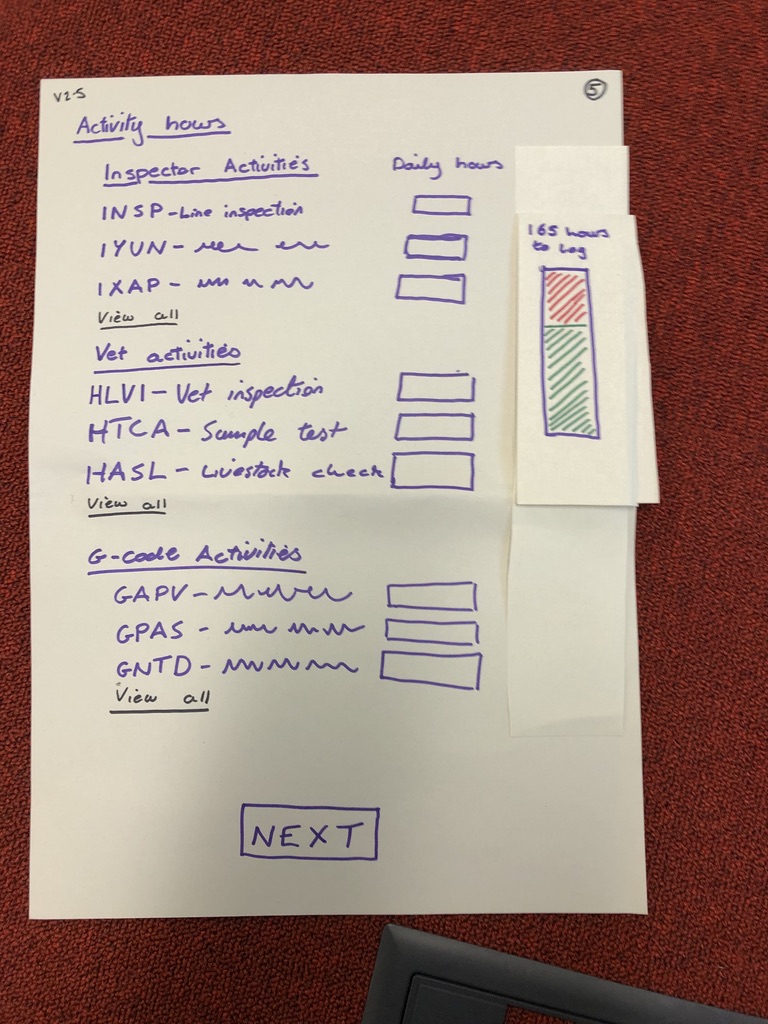 V2-S
5
Activity hours
Inspector Activities
Daily hours
INSP-Line inspection
IYUN-
IXAP-
View all
Vet activities
HLVI-Vet inspection
HTCA-Sample test
HASL-Livestock check
View all
G-code Activities
GAPV-
GPAS-
GNTD-
View all
165 hours
to log
NEXT